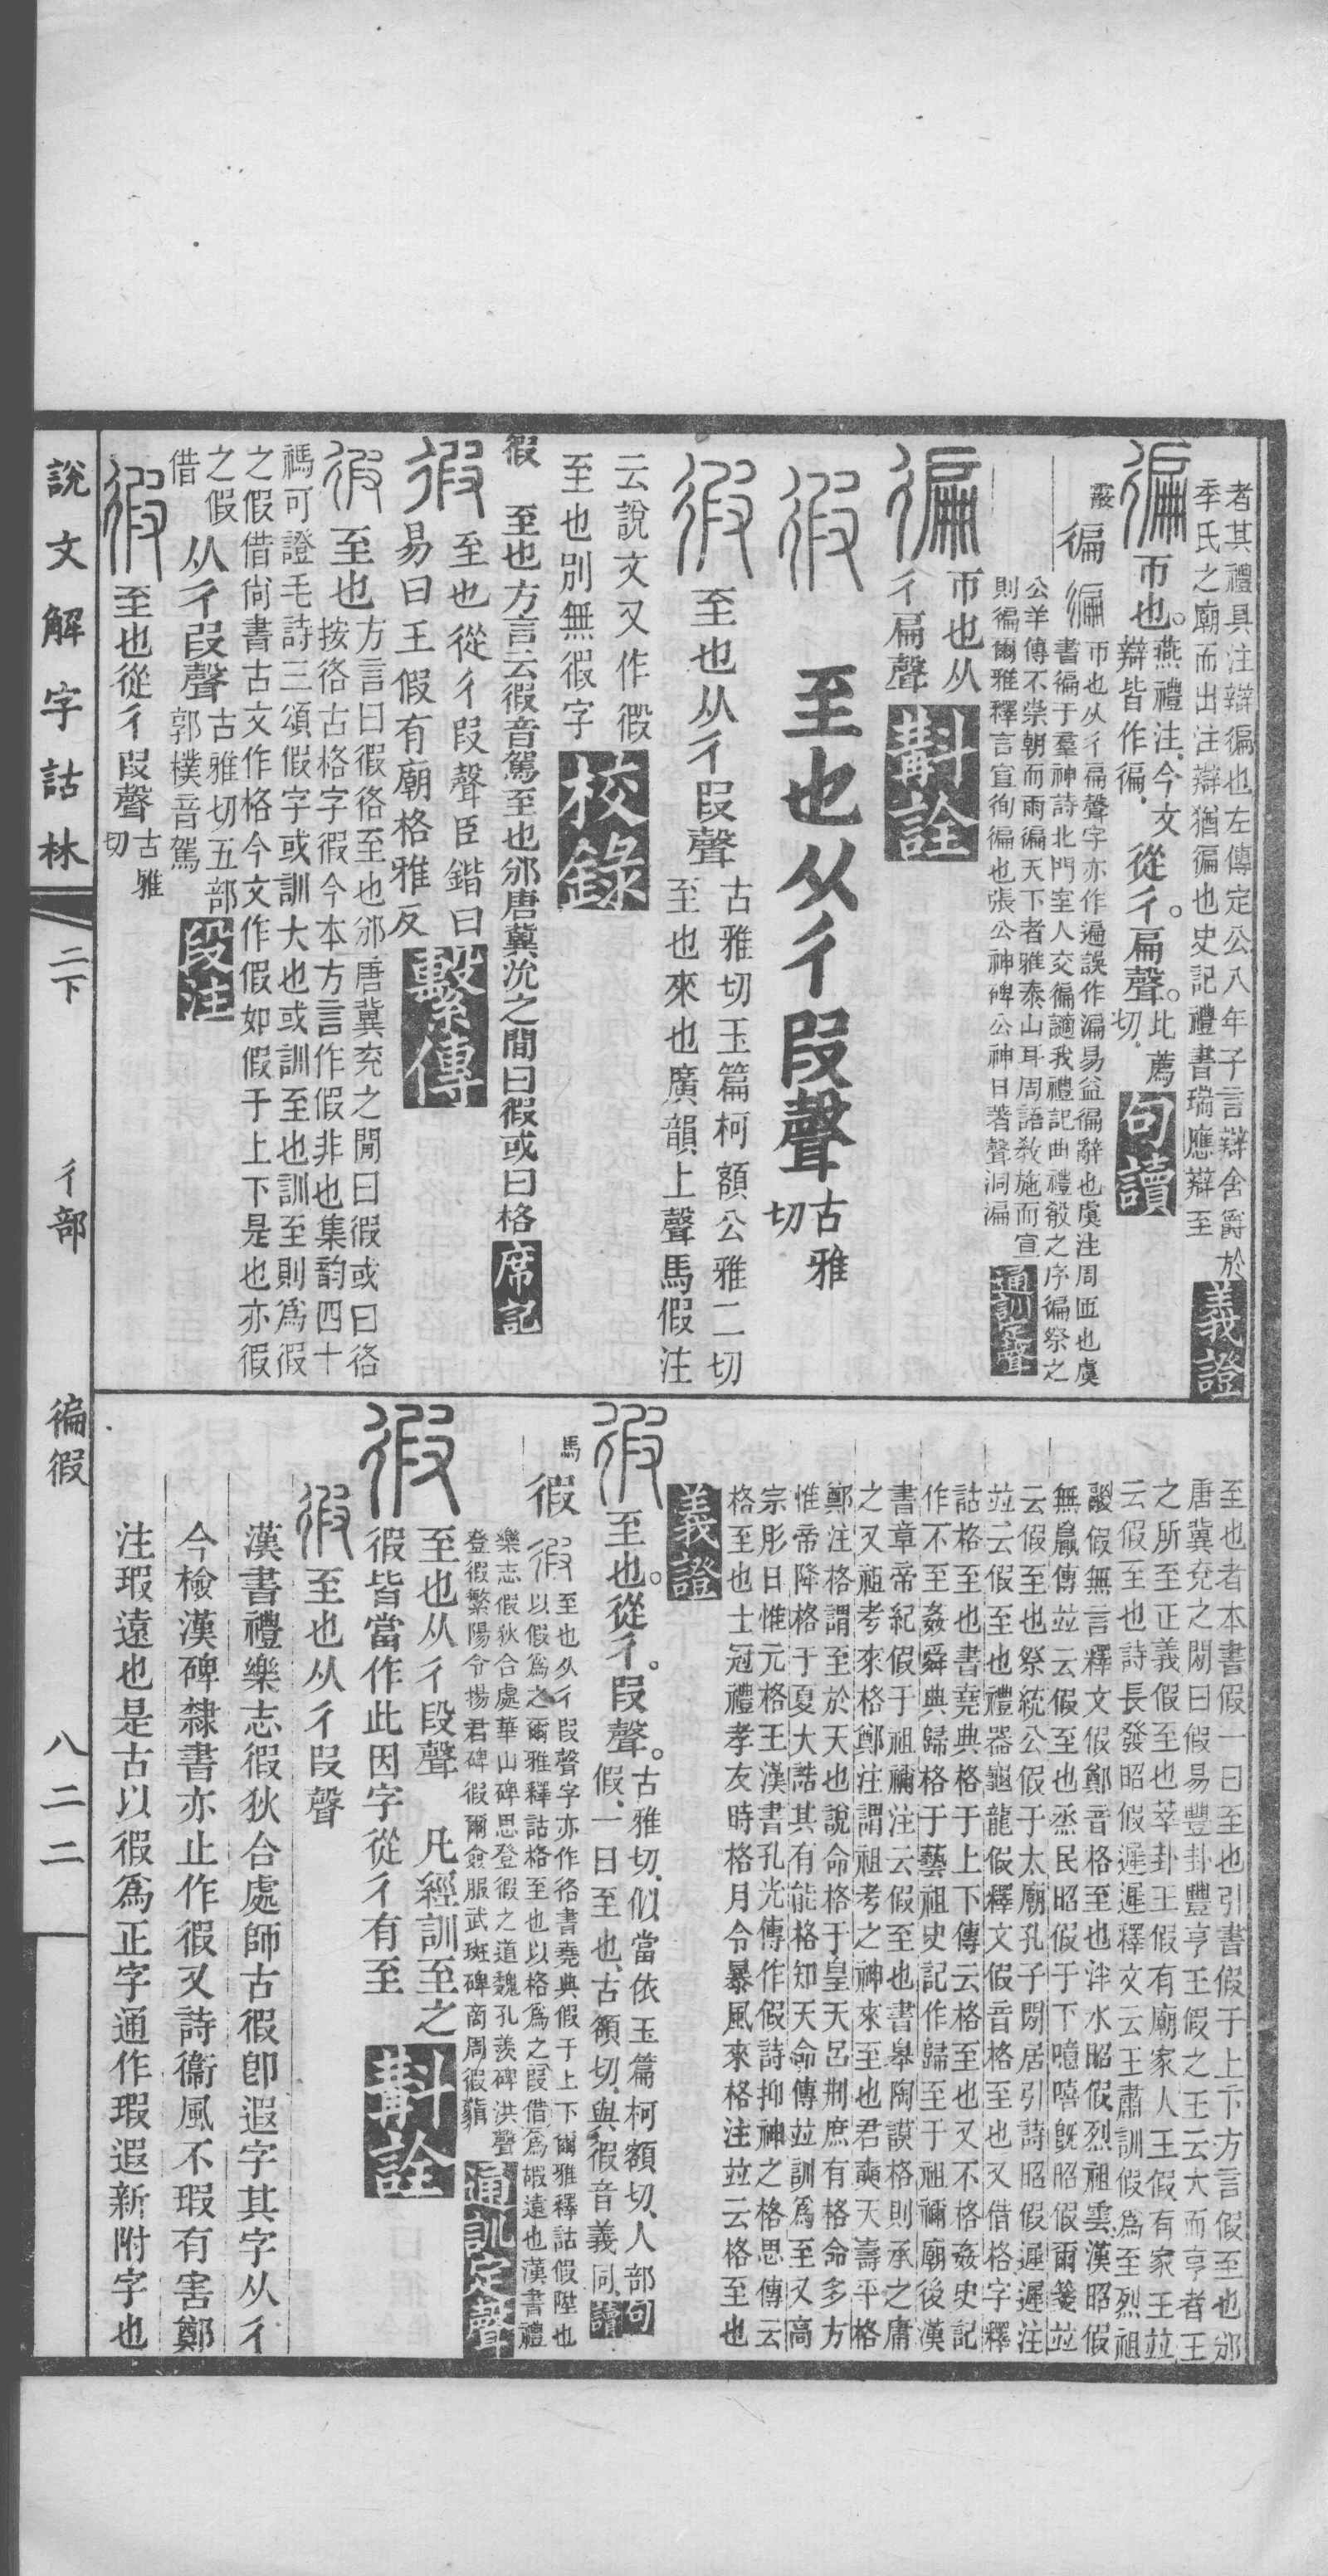 者其禮具注辯徧也左傳定公八年子言辯舍爵於
季氏之廟而出注辯猶徧也史記禮書瑞應辯至
義證
徧
帀也。燕禮注、今文
辯皆作徧、
從彳。扁聲。比薦
切、
句讀
霰
徧
徧
帀也从彳扁聲字亦作遍誤作漏易益徧辭也虞注周匝也虞
書徧于羣神詩北門室人交徧讁我禮記曲禮殽之序徧祭之
公羊傳不崇朝而雨徧天下者雅泰山耳周語敎施而宣
則徧爾雅釋言宣徇徧也張公神碑公神日著聲洞漏
通訓定聲
徧
帀也从
彳扁聲
斠詮
徦
至也从彳叚聲古雅
切
徦
至也从彳叚聲
古雅切玉篇柯額公雅二切
至也來也廣韻上聲馬假注
云說文又作徦
至也別無徦字
校錄
徦
至也方言云徦音駕至也邠唐冀沇之閒曰徦或曰格
席記
徦
至也從彳叚聲臣鍇曰
易曰王假有廟格雅反
繫傳
徦
至也
方言曰徦徦至也邠唐冀兖之閒曰徦或曰佫
按佫古格字徦今本方言作假非也集韵四十
禡可證毛詩三頌假字或訓大也或訓至也訓至則爲徦
之假借尙書古文作格今文作假如假于上下是也亦徦
之假
借
从彳叚聲
古雅切五部
郭樸音駕
段注
徦
至也從彳叚聲
古雅
切
說文解字詁林
二下
彳部
徧徦
八二二
至也者本書假一曰至也引書假于上下方言假至也邠
唐冀兖之閒曰假易豐卦豐亨王假之王云大而亨者王
之所至正義假至也萃卦王假有廟家人王假有家王竝
云假至也詩長發昭假遲遲釋文云王肅訓假爲至烈祖
鬷假無言釋文假鄭音格至也泮水昭假烈祖雲漢昭假
無贏傳竝云假至也烝民昭假于下噫嘻旣昭假爾箋竝
云假至也祭統公假于太廟孔子閒居引詩昭假遲遲注
竝云假至也禮器龜龍假釋文假音格至也又借格字釋
詁格至也書堯典格于上下傳云格至也又不格姦史記
作不至姦舜典歸格于藝祖史記作歸至于祖禰廟後漢
書章帝紀假于祖禰注云假至也書皋陶謨格則承之庸
之又祖考來格鄭注謂祖考之神來至也君奭天壽平格
鄭注格謂至於天也說命格于皇天呂刑庶有格命多方
惟帝降格于夏大誥其有能格知天命傳竝訓爲至又高
宗肜日惟元格王漢書孔光傳作假詩抑神之格思傳云
格至也士冠禮孝友時格月令暴風來格注竝云格至也
義證
徦
至也。從彳。叚聲。
古雅切、似當依玉篇柯額切、人部
假、一曰至也、古額切、與徦音義同、
句讀
馬
徦
徦
至也从彳叚聲字亦作佫書堯典假于上下爾雅釋詁假陞也
以假爲之爾雅釋詁格至也以格爲之叚借爲嘏遠也漢書禮
樂志徦狄合處華山碑思登徦之道魏孔羨碑洪聲
登徦繁陽令揚君碑徦爾僉服武斑碑商周徦藐
通訓定聲
徦
至也从彳段聲 凡經訓至之
徦皆當作此因字從彳有至
斠詮
徦
至也从彳叚聲
漢書禮樂志徦狄合處師古徦卽遐字其字从彳
今檢漢碑隸書亦止作徦又詩衞風不瑕有害鄭
注瑕遠也是古以徦爲正字通作瑕遐新附字也